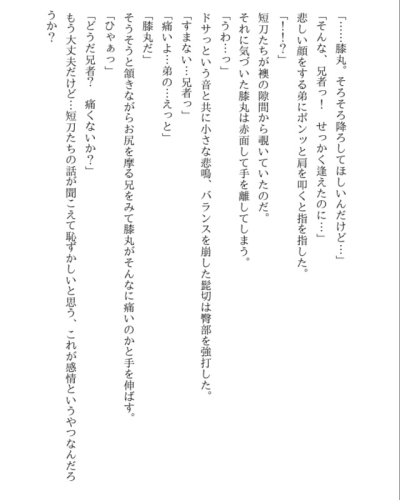 「……膝丸。そろそろ降ろしてほしいんだけど…」
「そんな、兄者っ！　せっかく逢えたのに…」
悲しい顔をする弟にポンッと肩を叩くと指を指した。
「！！？」
短刀たちが襖の隙間から覗いていたのだ。
それに気づいた膝丸は赤面して手を離してしまう。
「うわ…っ」
ドサっという音と共に小さな悲鳴、バランスを崩した髭切は臀部を強打した。
「すまない…兄者っ」
「痛いよ…弟の…えっと」
「膝丸だ」
そうそうと頷きながらお尻を摩る兄をみて膝丸がそんなに痛いのかと手を伸ばす。
「ひゃぁっ」
「どうだ兄者？　痛くないか？」
もう大丈夫だけど…短刀たちの話が聞こえて恥ずかしいと思う、これが感情というやつなんだろ
うか？